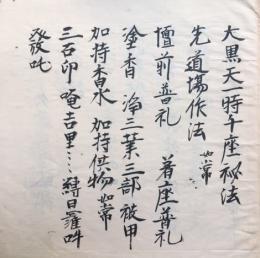 大黒天一時千座秘法
先道場作法 如常
壇前普礼 着座普礼
塗香 浄三業三部被甲
加持香水 加持供物如常
三古印唵吉里〻〻縛日羅吽
發吒